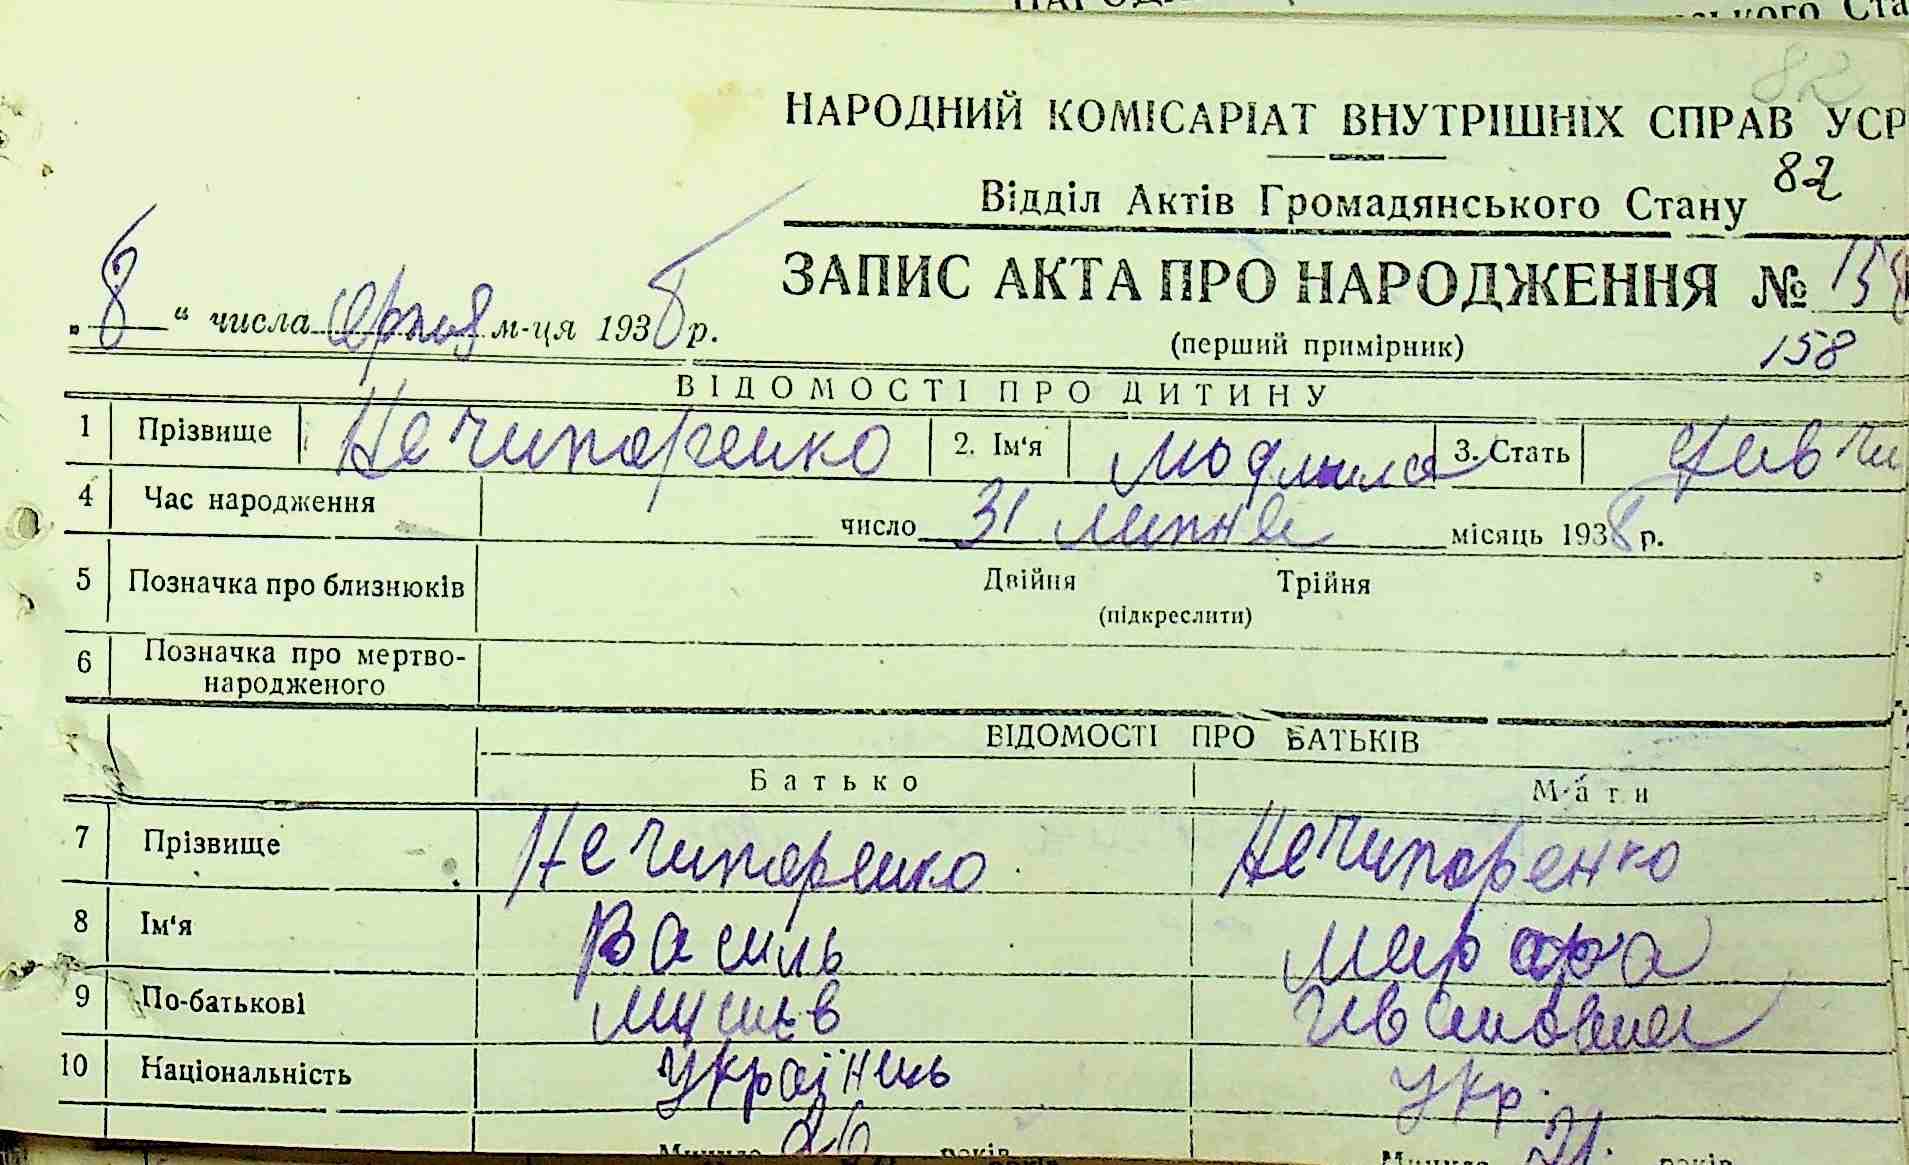 82
НАРОДНИЙ КОМІСАРІАТ ВНУТРІШНІХ СПРАВ УСР
Відділ Актів Громадянського Стану 82
ЗАПИС АКТА ПРО НАРОДЖЕННЯ № 158
„8“ числа серпня м-ця 1938 р.
(перший примірник) 158
ВІДОМОСТІ ПРО ДИТИНУ
1 Прізвище Нечипоренко 2. Ім'я Людмила 3. Стать
4 Час народження число 31 липня місяць 1938 р.
5 Позначка про близнюків Двійня Трійня
(підкреслити)
6 Позначка про мертво-
народженого
ВІДОМОСТІ ПРО БАТЬКІВ
Батько Мати
7 Прізвище Нечипоренко Нечипоренко
8 Ім'я Василь
9 По-батькові Івановна
10 Національність Українець Укр.
Минуло 26 років Минуло 21 років